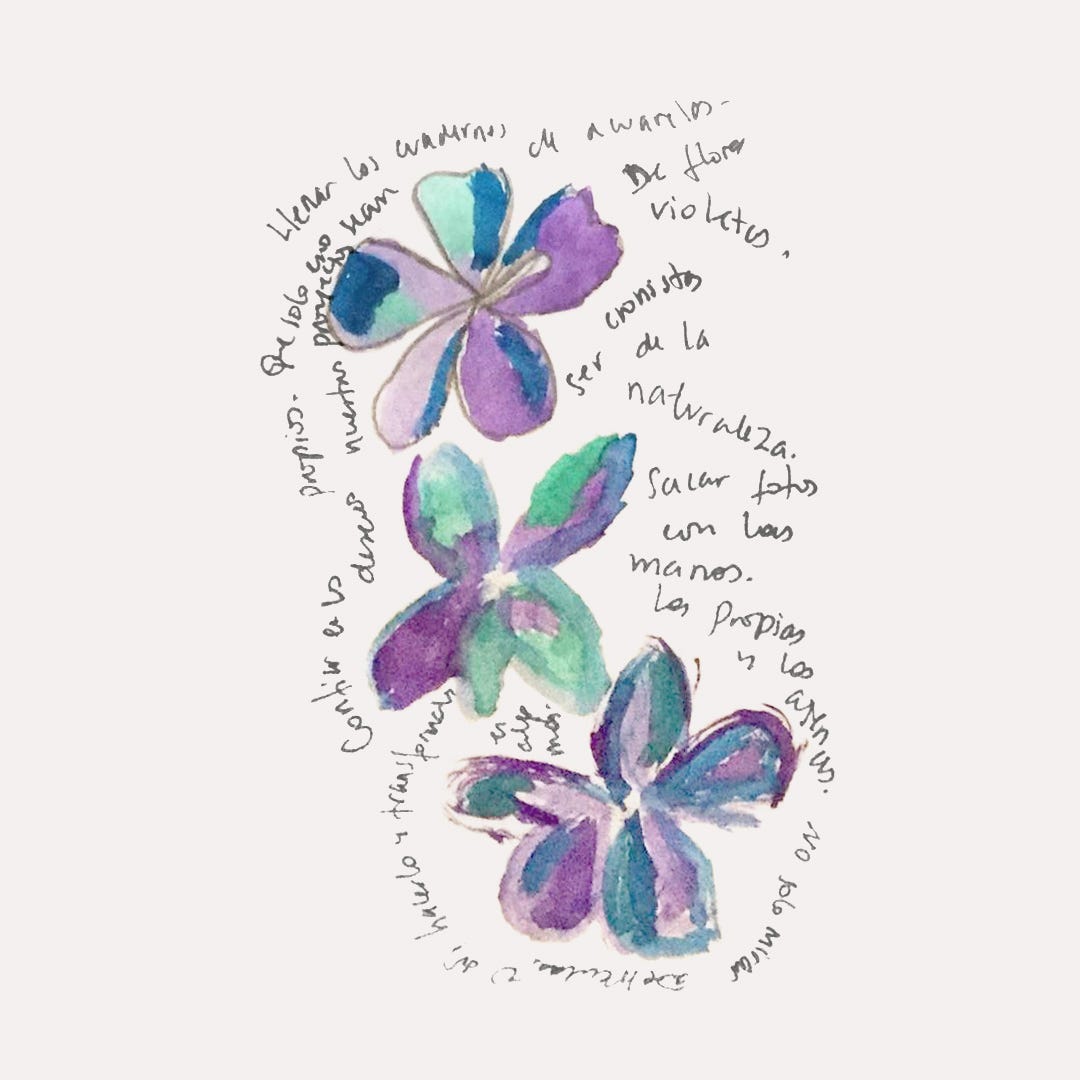 Llenar los cuadernos de acuarelas.
De flores
violetas.
ser cronistas
de la
naturaleza.
Sacar fotos
con las
manos.
Las propias
y las
ajenas.
No solo mirar
películas. O sí, hacerlo y transformarlo
en algo
más.
Confiar en los
deseos
propios. Que solo
nuestros proyectos sean